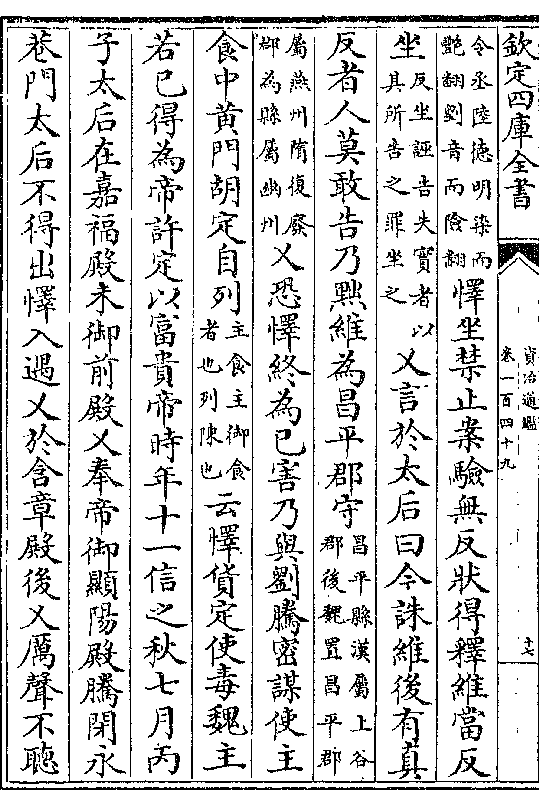 欽定四庫全書
資治通鑑
卷一百四十九
十七
令丞陸徳明染而
艷翻劉音而險翻
懌坐禁止案驗無反狀得釋維當反
坐
反坐誣告失實者以
其所告之罪坐之
乂言於太后曰今誅維後有真
反者人莫敢告乃黜維為昌平郡守
昌平縣漢屬上谷
郡後魏置昌平郡
屬燕州隋復廢
郡為縣屬幽州
乂恐懌終為已害乃與劉騰密謀使主
食中黄門胡定自列
主食主御食
者也列陳也
云懌貨定使毒魏主
若已得為帝許定以富貴帝時年十一信之秋七月丙
子太后在嘉福殿未御前殿乂奉帝御顯陽殿騰閉永
巷門太后不得出懌入遇乂於含章殿後乂厲聲不聽